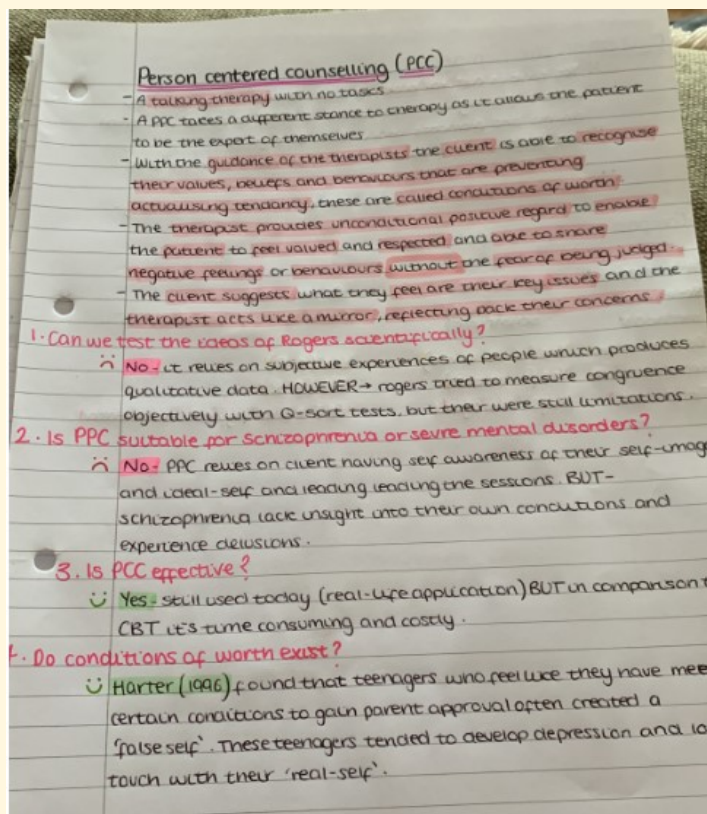 Person centered counselling (PCC)
- A talking therapy with no tasks
- A PPC takes a different stance to therapy as it allows the patient
to be the expert of themselves
- With the guidance of the therapists the client is able to recognise
their values, beliefs and behaviours that are preventing
actualising tendancy, these are called conditions of worth
- The therapist provides unconditional positive regard to enable
the patient to feel valued and respected and able to share
negative feelings or behaviours without the fear of being judged.
- The client suggests what they feel are their key issues and the
therapist acts like a mirror, reflecting back their concerns
1. Can we test the ideas of Rogers scientifically?
No - it relies on subjective experiences of people which produces
qualitative data. HOWEVER → rogers tried to measure congruence
objectively with Q-sort tests, but their were still limitations.
2. Is PPC suitable for schizophrenia or sevre mental disorders?
No - PPC relies on client having self awareness of their self-image
and ideal-self and leading leading the sessions. BUT -
schizophrenia lack insight into their own conditions and
experience delusions.
3. Is PCC effective?
Yes - still used today (real-life application) BUT in comparison
CBT it's time consuming and costly.
Do conditions of worth exist?
Harter (1996) found that teenagers who feel like they have mee
certain conditions to gain parent approval often created a
'false self'. These teenagers tended to develop depression and lo
touch with their 'real-self'.